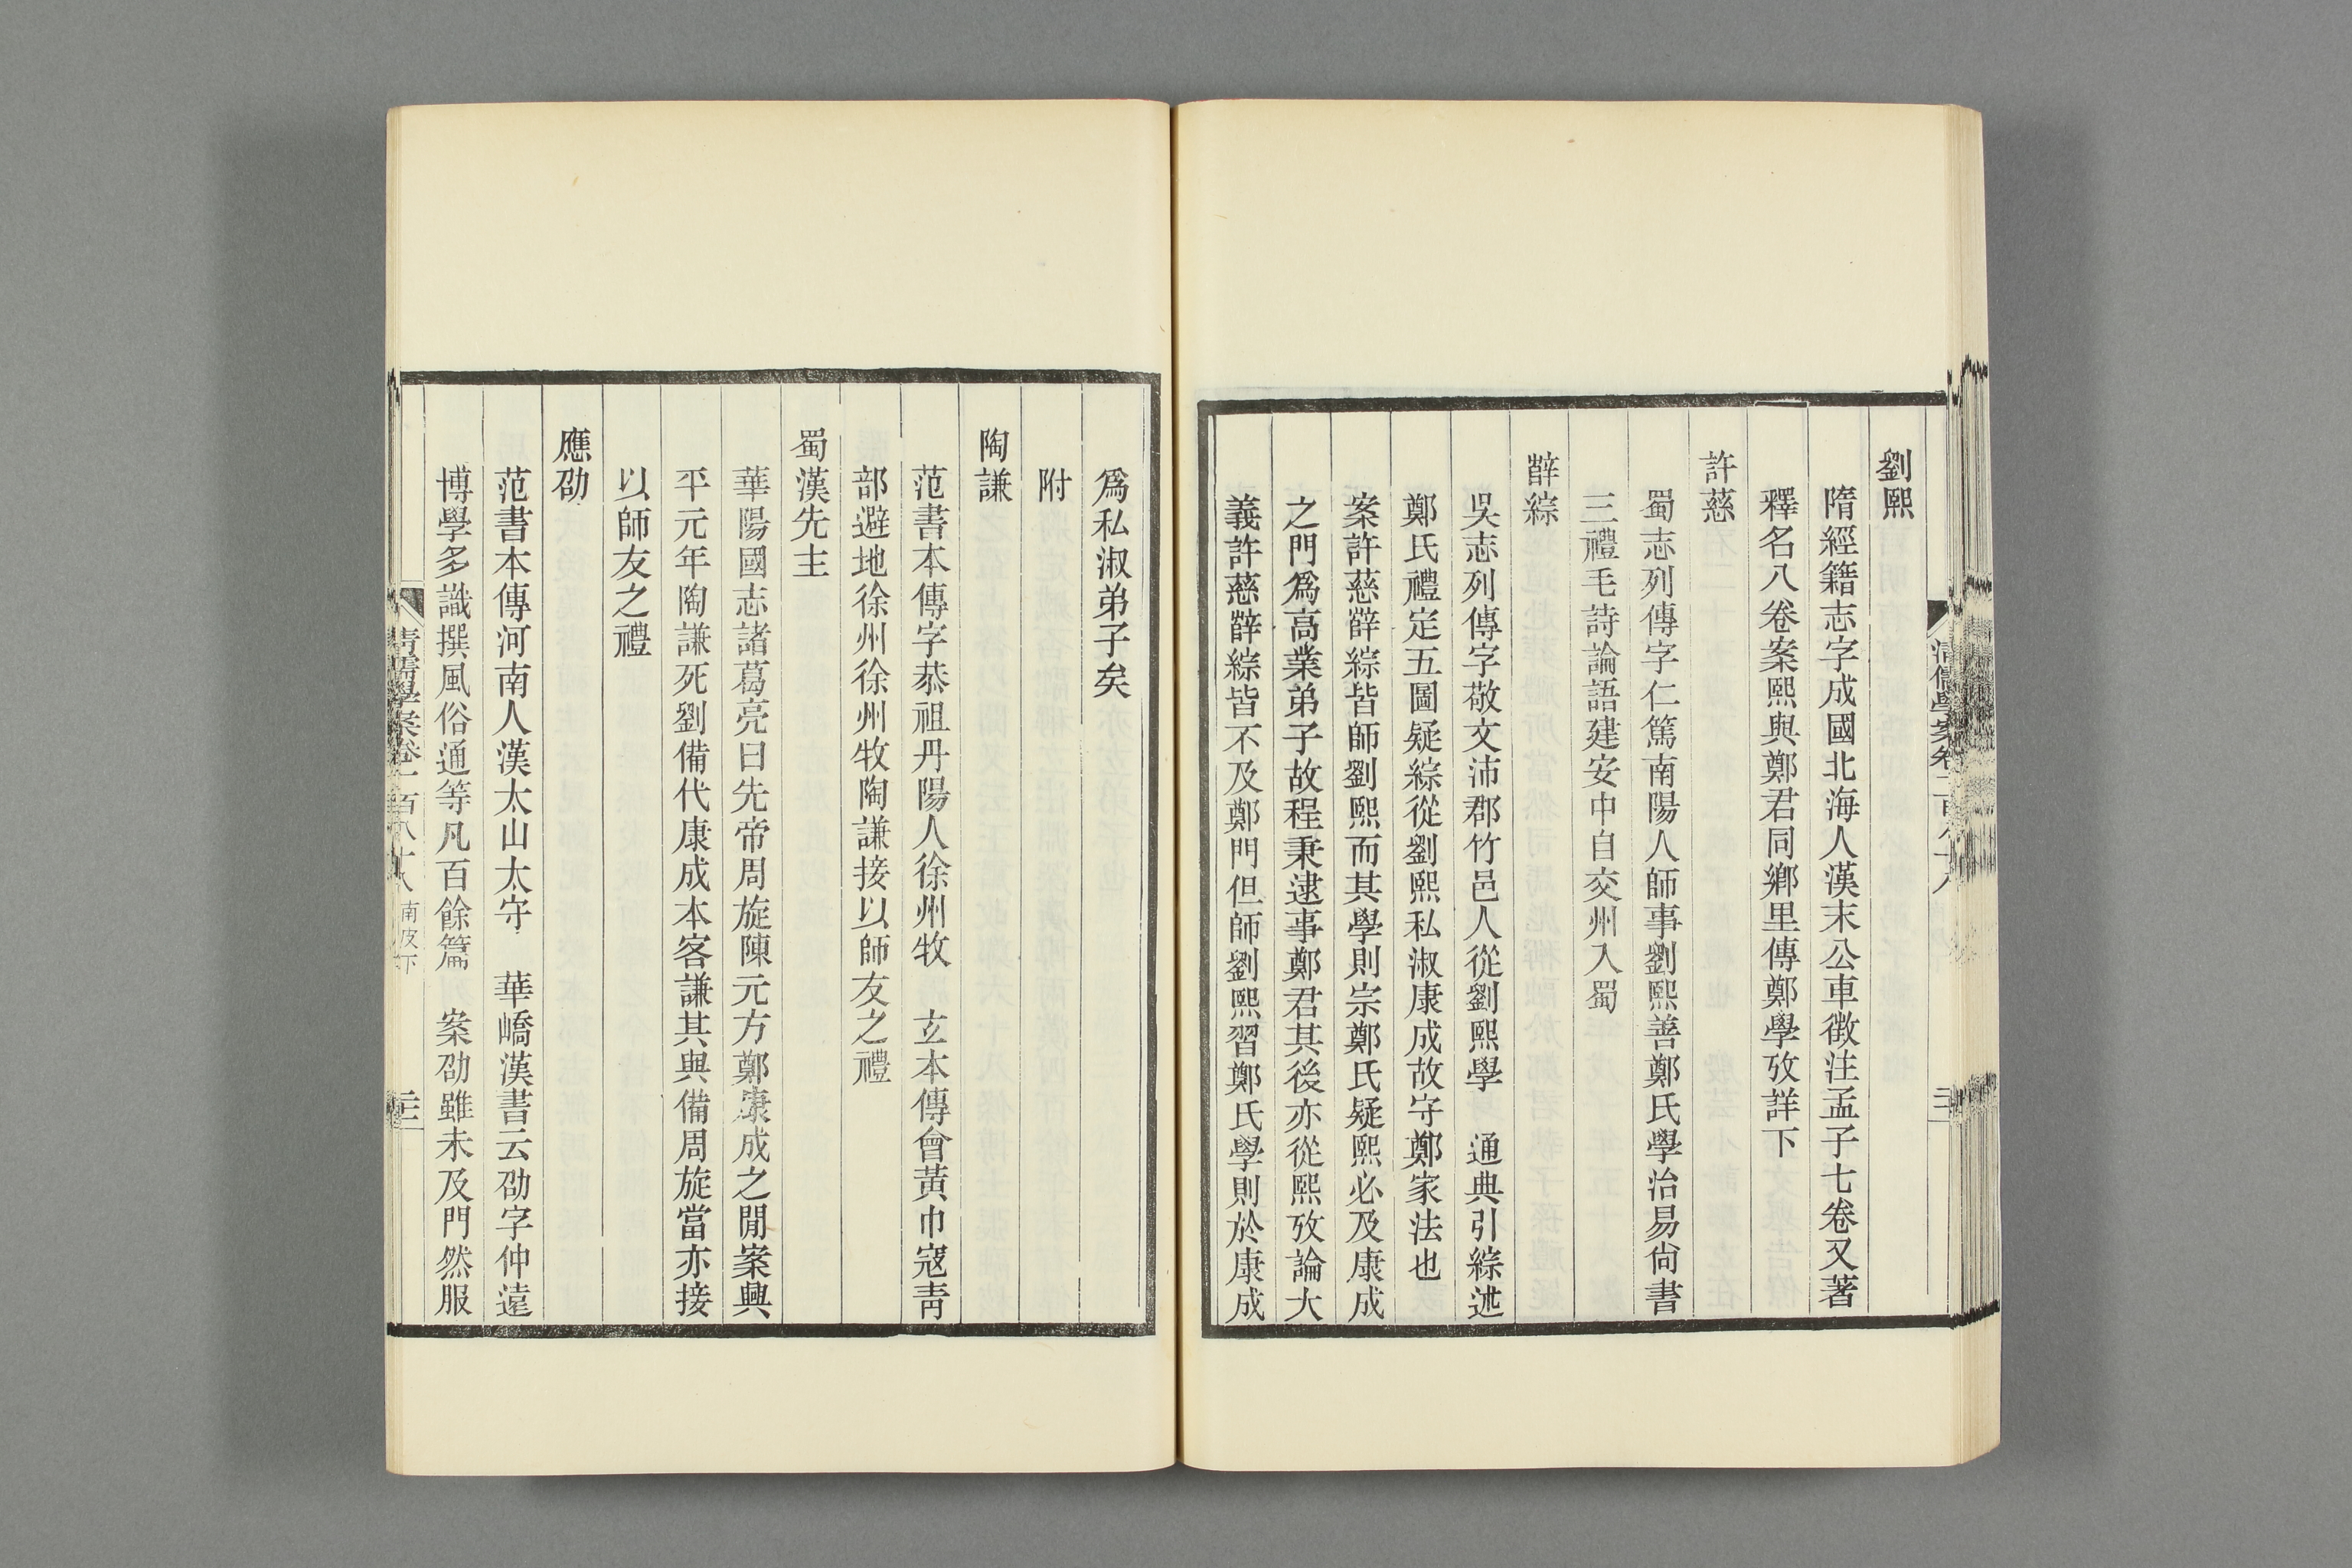 劉熙
隋經籍志字成國北海人漢末公車徵注孟子七卷又著
釋名八卷案熙與鄭君同鄉里傳鄭學攷詳下
許慈
蜀志列傳字仁篤南陽人師事劉熙善鄭氏學治易尙書
三禮毛詩論語建安中自交州入蜀
薛綜
吳志列傳字敬文沛郡竹邑人從劉熙學　通典引綜述
鄭氏禮定五圖疑綜從劉熙私淑康成故守鄭家法也
案許慈薛綜皆師劉熙而其學則宗鄭氏疑熙必及康成
之門爲高業弟子故程秉逮事鄭君其後亦從熙攷論大
義許慈薛綜皆不及鄭門但師劉熙習鄭氏學則於康成
爲私淑弟子矣
附
陶謙
范書本傳字恭祖丹陽人徐州牧　玄本傳會黃巾寇靑
部避地徐州徐州牧陶謙接以師友之禮
蜀漢先主
華陽國志諸葛亮曰先帝周旋陳元方鄭康成之閒案興
平元年陶謙死劉備代康成本客謙其與備周旋當亦接
以師友之禮
應劭
范書本傳河南人漢太山太守　華嶠漢書云劭字仲遠
博學多識撰風俗通等凡百餘篇　案劭雖未及門然服
清儒學案卷一百八十八　南皮下